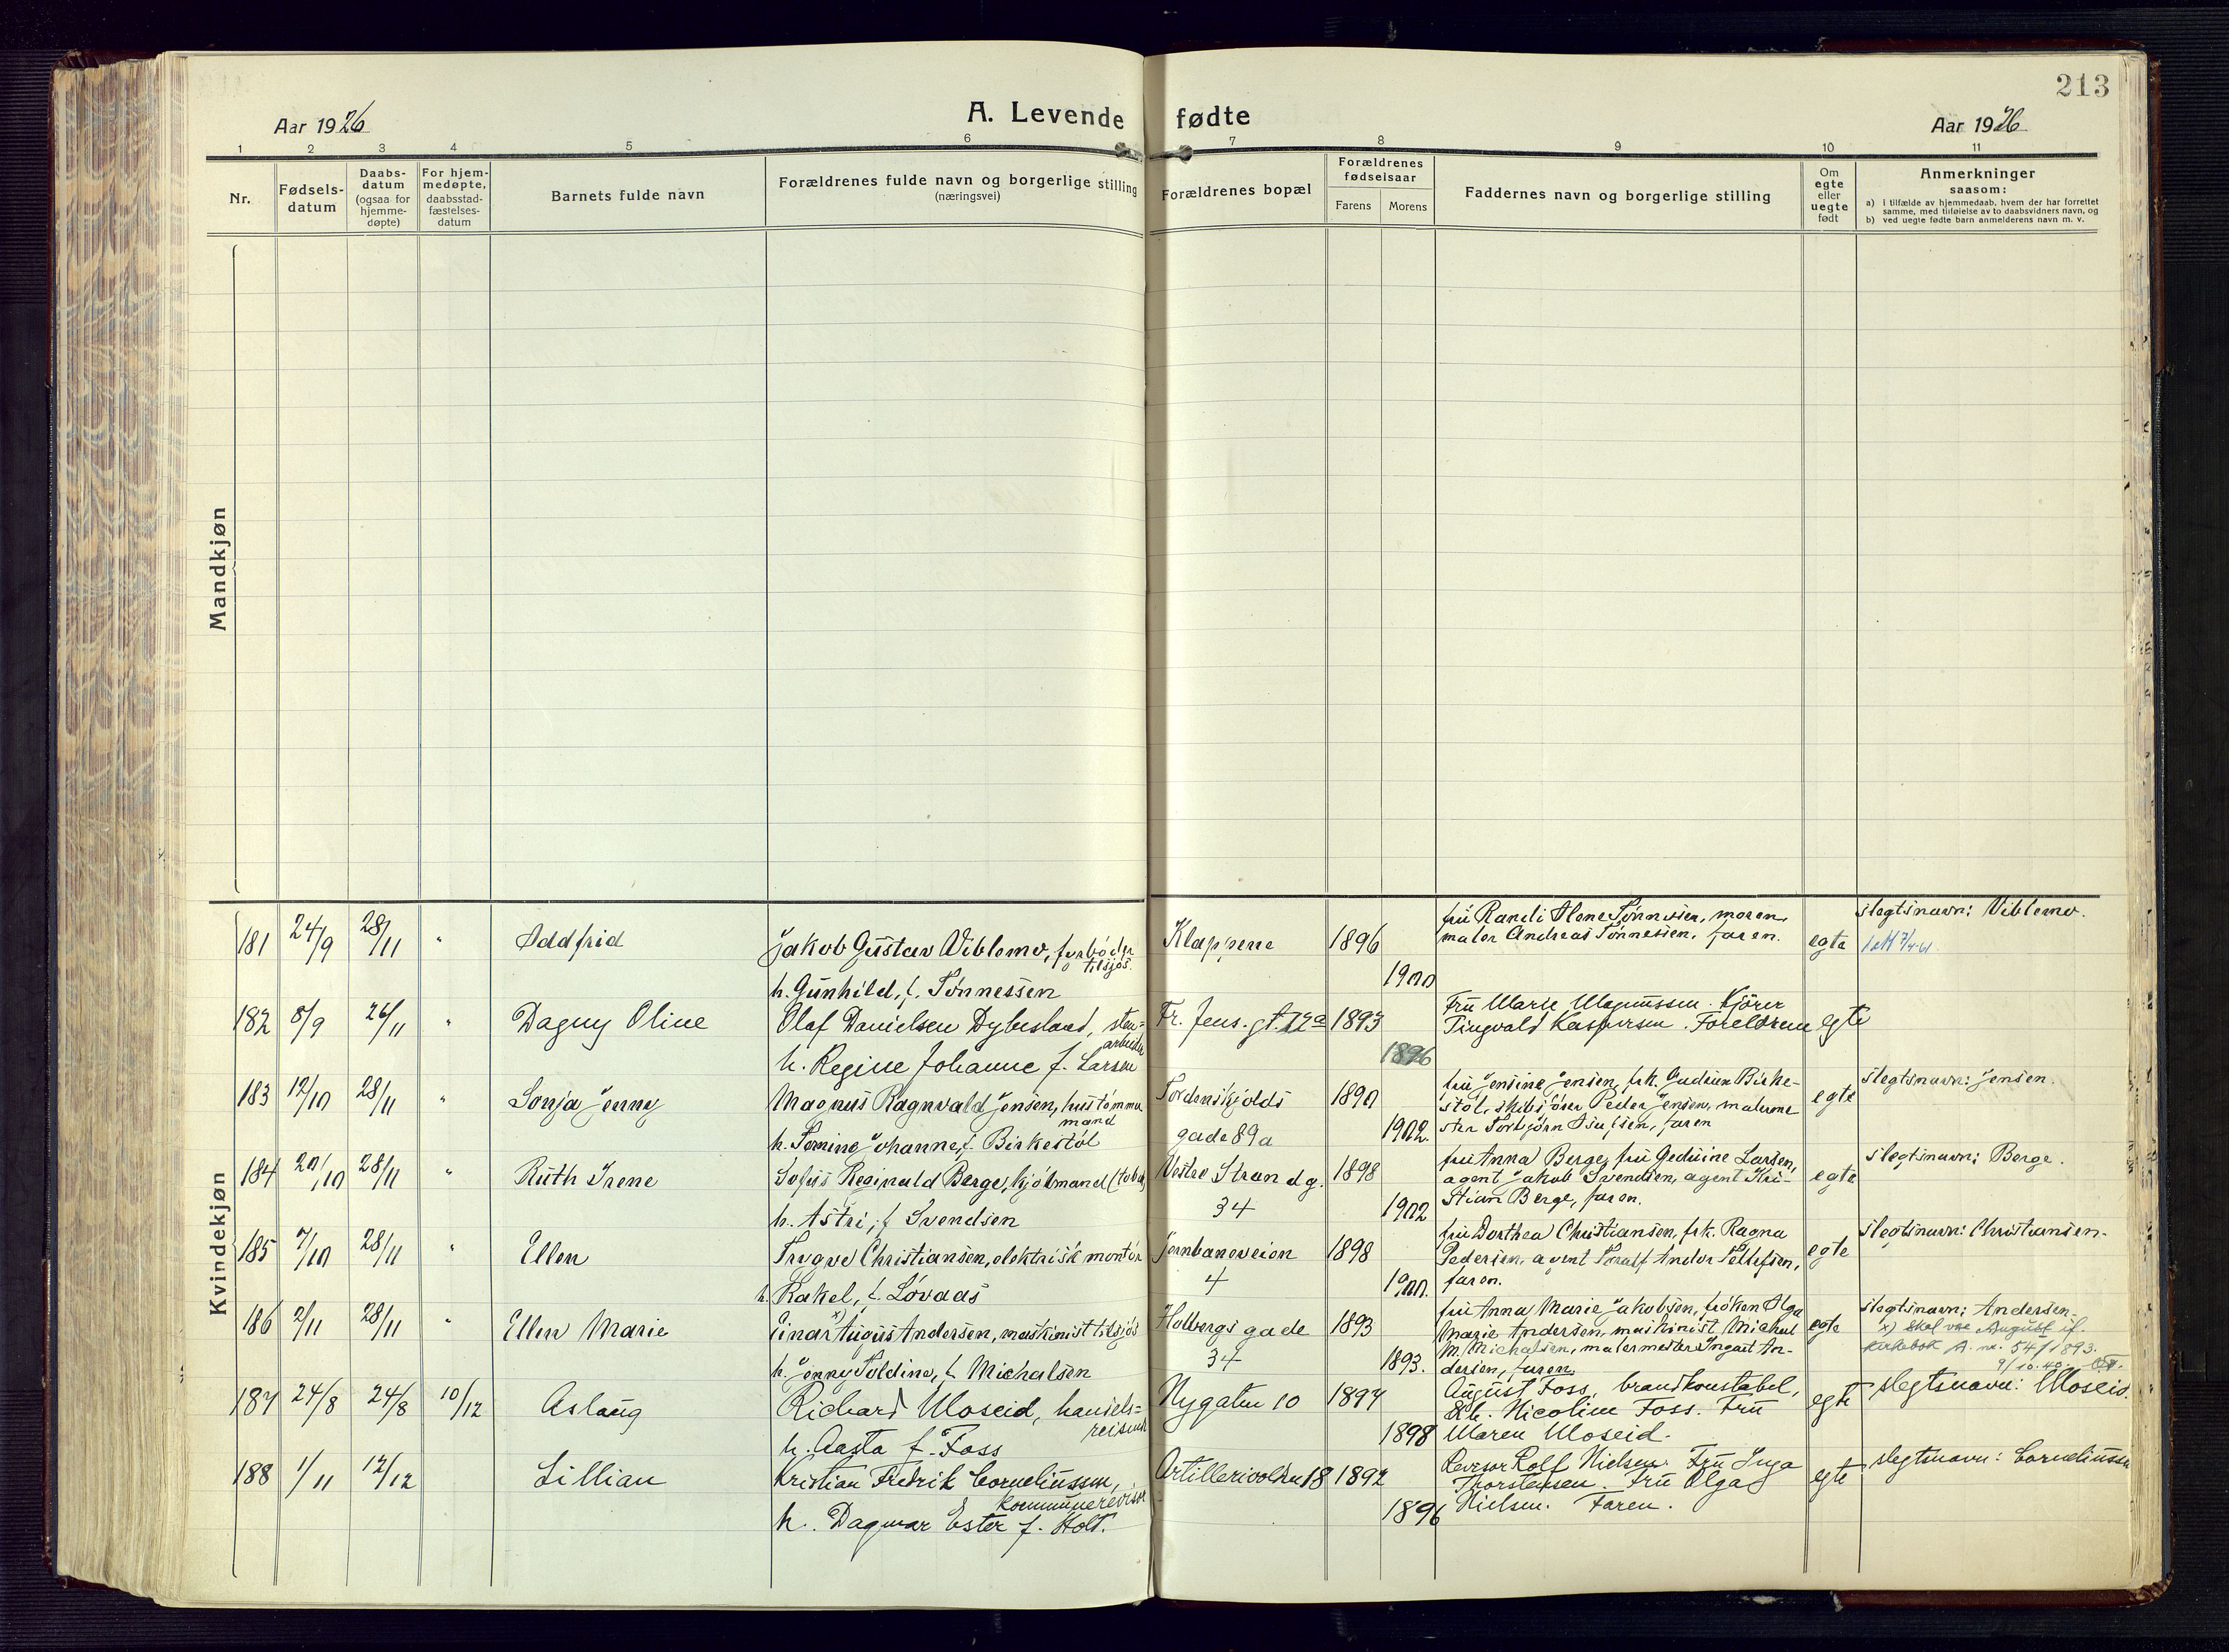 213
Aar 1926
A. Levende fødte
Aar 1926
1 2 3 4 5 6 7 8 9 10 11
Nr.
Fødsels-
datum
Daabs-
datum
(ogsaa for
hjemme-
døpte)
For hjem-
medøpte,
daabsstad-
fæstelses-
datum
Barnets fulde navn
Forældrenes fulde navn og borgerlige stilling
(næringsvei)
Forældrenes bopæl
Forældrenes
fødselsaar
Farens Morens
Faddernes navn og borgerlige stilling
Om
egte
eller
uegte
født
Anmerkninger
saasom:
a) i tilfælde av hjemmedaab, hvem der har forrettet
samme, med tilføielse av to daabsvidners navn, og
b) ved uegte fødte barn anmelderens navn m. v.
Mandkjøn
Kvindekjøn
181 24/9 28/11 " Oddfrid
Jakob Gustav Viblemo,
tilsjøs.
h. Gunhild, f. Tønnessen
Klappene 1896
1900
fru Randi Olene Tønnesen, moren,
maler Andreas Tønnesen, faren.
egte
slegtsnavn: Viblemo.
182 8/9 26/11 " Dagny Oline
Olaf Danielsen Dybesland, sten-
arbeider
h. Regine Johanne f. Larsen
Fr. Jens. gt. 72a 1893
1896
Fru Marie Magnussen. Kjører
Tingvald Kaspersen. Foreldrene
egte
183 12/10 28/11 " Sonja Jenny
Magnus Ragnvald Jensen, hustømmer
mand
h. Tomine Johanne, f. Birkestøl
Tordenskjolds
gade 89a
1890
1902.
fru Jensine Jensen, frk. Gudrun Birke-
støl, skibsfører Peder Jensen, malerme
ster Torbjørn faren
egte
slegtsnavn: Jensen.
184 20/10 28/11 " Ruth Irene
Sofus Reginald Berge, kjøbmand
h. Astri, f Svendsen
Vestre Strandg.
34
1898
1902
fru Anna Berge, fru Geduine Larsen,
agent Jakob Svendsen, agent Kri-
stian Berge, faren.
egte
slegtsnavn: Berge.
185 7/10 28/11 " Ellen
Trygve Christiansen, elektrisk montør
h. Rakel, f. Løvaas
Jernbaneveien
4
1898
1900.
fru Dorthea Christiansen, frk. Ragna
Pedersen, agent Toralf Andor
faren.
egte
slegtsnavn: Christiansen.
186 2/11 28/11 " Ellen Marie
Einar x) Augus Andersen, maskinist tilsjøs
h. Jenny Soldine, f Michalsen
Holbergs gade
34
1893
1893.
fru Anna Marie Jakobsen, frøken Olga
Marie Andersen, maskinist Michael
M. Michalsen, malermester Ingart An-
dersen, faren
egte
slegtsnavn: Andersen.
x) skal være August jf.
kirkebok A. nr. 54/1893.
9/10.40.
187 24/8 24/8 10/12 Aslaug
Richard Moseid, handels-
reisende
h. Aasta f. Foss
Nygaten 10 1897
1898
August Foss, brandkonstabel,
Nicoline Foss. Fru
Maren Moseid.
egte
slegtsnavn: Moseid.
188 1/11 12/12 Lillian
Kristian Fredrik Corneliussen,
kommunerevisor
h. Dagmar Ester f. Holt.
Artillerivolden 18 1892
1896
Revisor Rolf Nielsen. Fru Inga
Thorstensen. Fru Olga
Nielsen. Faren.
egte
slegtsnavn: Corneliussen